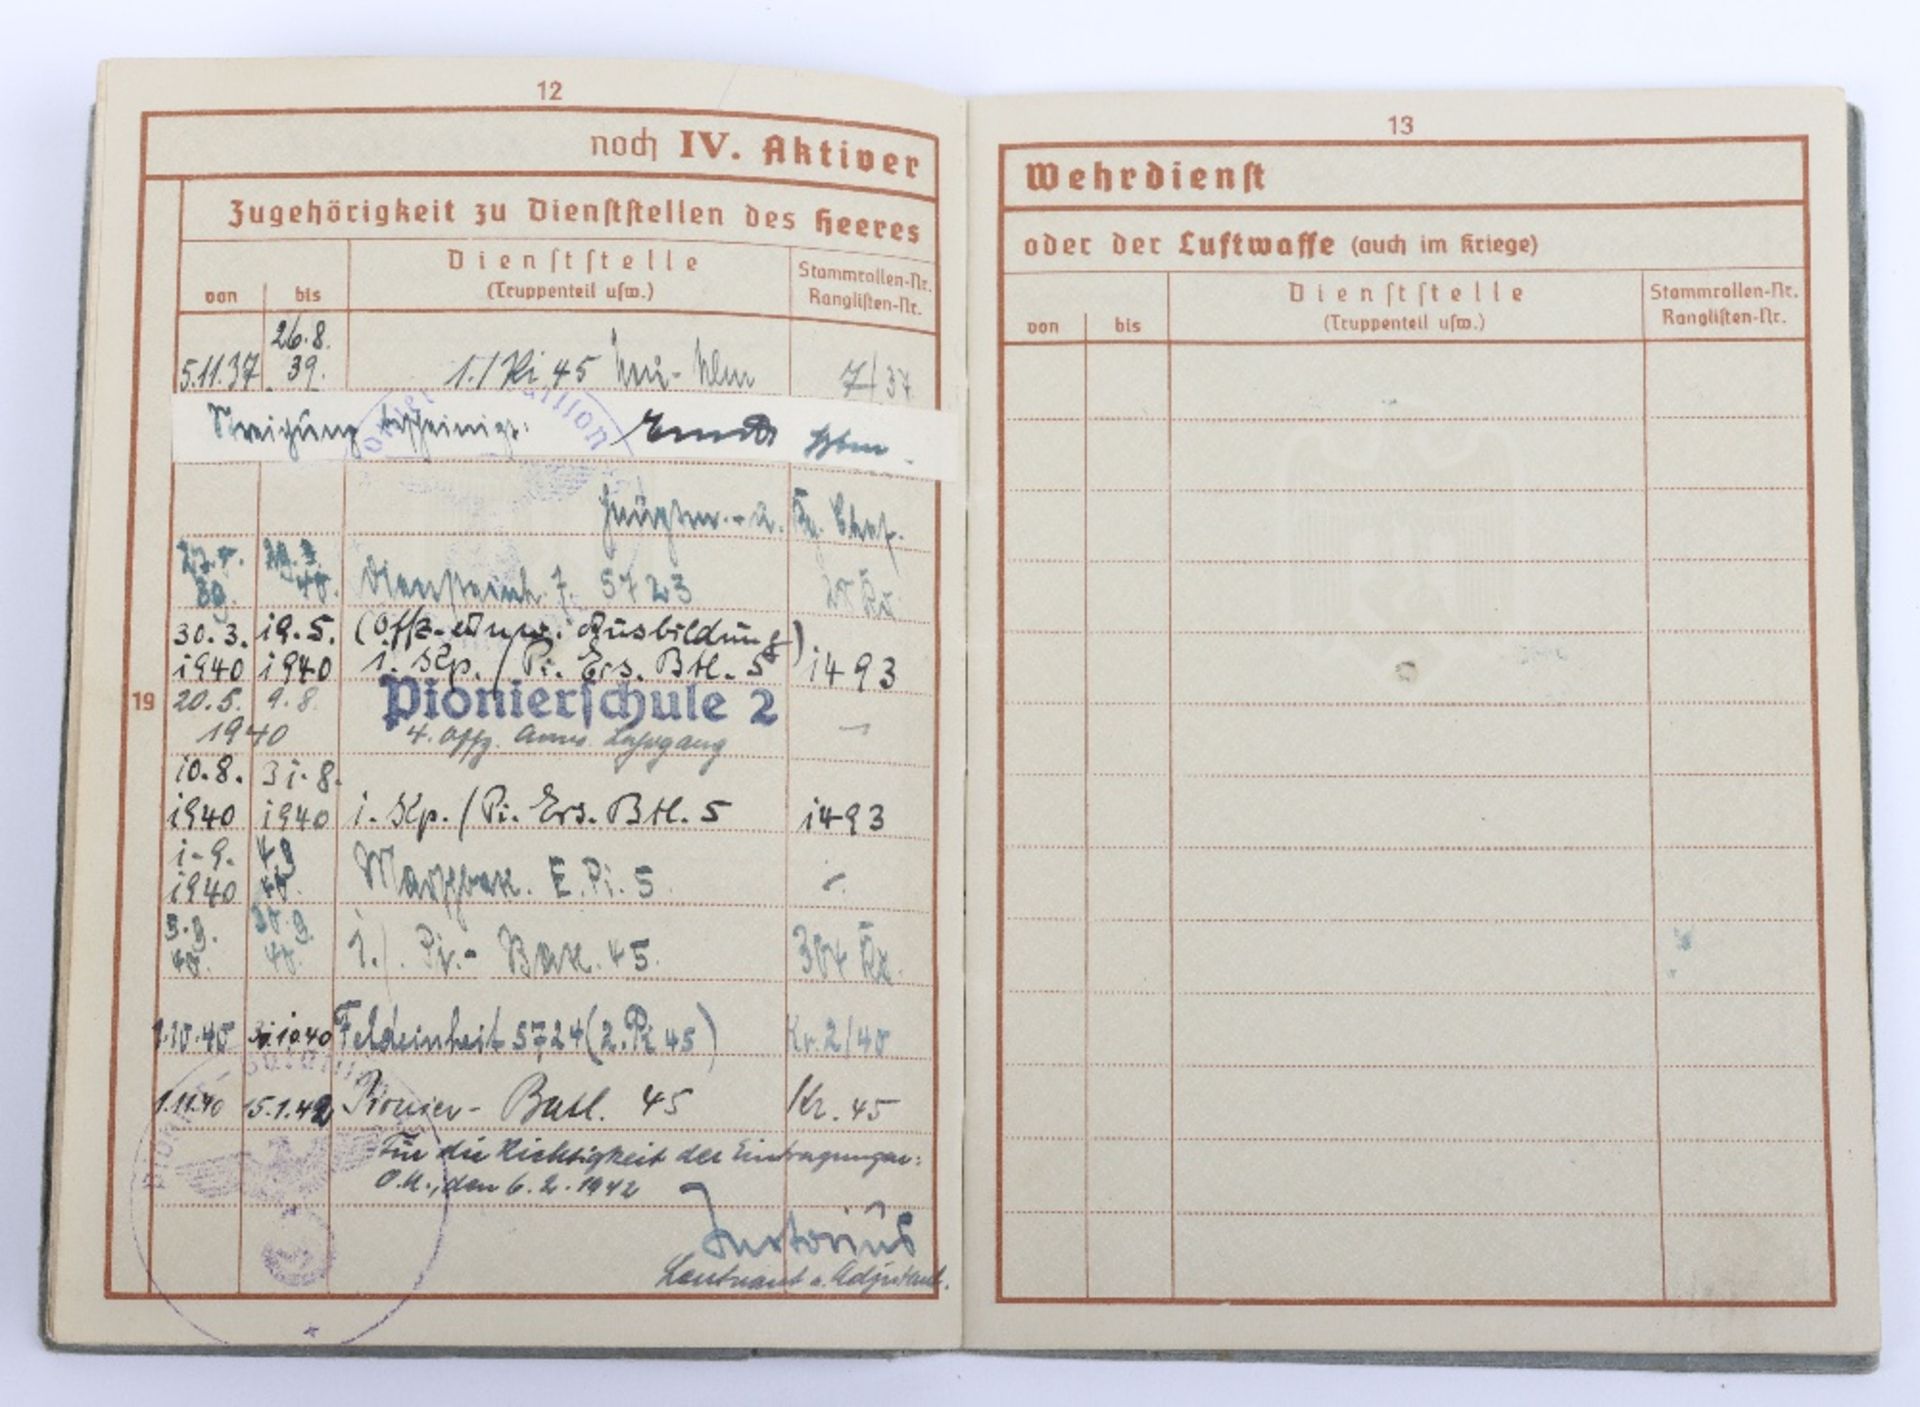 12
noch IV. Aktiver
Zugehörigkeit zu Dienststellen des Heeres
von bis Dienststelle (Truppenteil usw.) Stammrollen-Nr. Ranglisten-Nr.
26.8.
5.11.37 39. 1./Pi 45 Neu-Ulm 7/37
bescheinigt:
Dienststeinh. 7. 5723
30.3. 19.5. (Offz.-Anw. Ausbildung)
1940 1940 1. Kp. / Pi. Ers. Btl. 5 1493
19 20.5. 9.8. Pionierschule 2
1940 4. Offz. Anw. Lehrgang –
10.8. 31.8.
1940 1940 1. Kp. / Pi. Ers. Btl. 5 1493
1.9.
1940 E. Pi. 5
1./. Pi.- 45.
1.10.40 31.10.40 Feldeinheit 5724 (2. Pi 45) Kr. 2/40
1.11.40 15.1.42 Pionier- Batl. 45 Kr. 45
Für die Richtigkeit der Eintragungen:
O.U., den 6.2.1942
Leutnant u. Adjutant.
13
Wehrdienst
oder der Luftwaffe (auch im Kriege)
von bis Dienststelle (Truppenteil usw.) Stammrollen-Nr. Ranglisten-Nr.